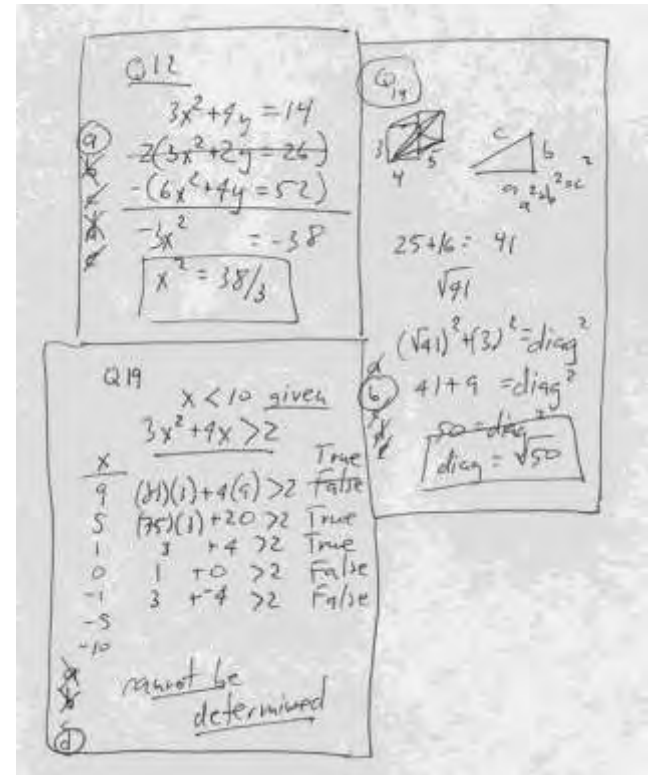 Q12
3x²+4y = 14
-2(3x²+2y = 26)
-(6x²+4y = 52)
-3x² = -38
x² = 38/3
a
b
c
d
e
Q19
3
4
5
c
b
a
a²+b²=c²
25+16 = 41
√41
(√41)²+(3)² = diag²
41+9 = diag²
50 = diag²
diag = √50
a
b
Q19
x < 10 given
3x²+4x > 2
x
True
9 (81)(3)+4(9) >2 False
5 (75)(1)+20 >2 True
1 3 +4 >2 True
0 1 +0 >2 False
-1 3 +-4 >2 False
-5
-10
cannot be
determined
a
b
d